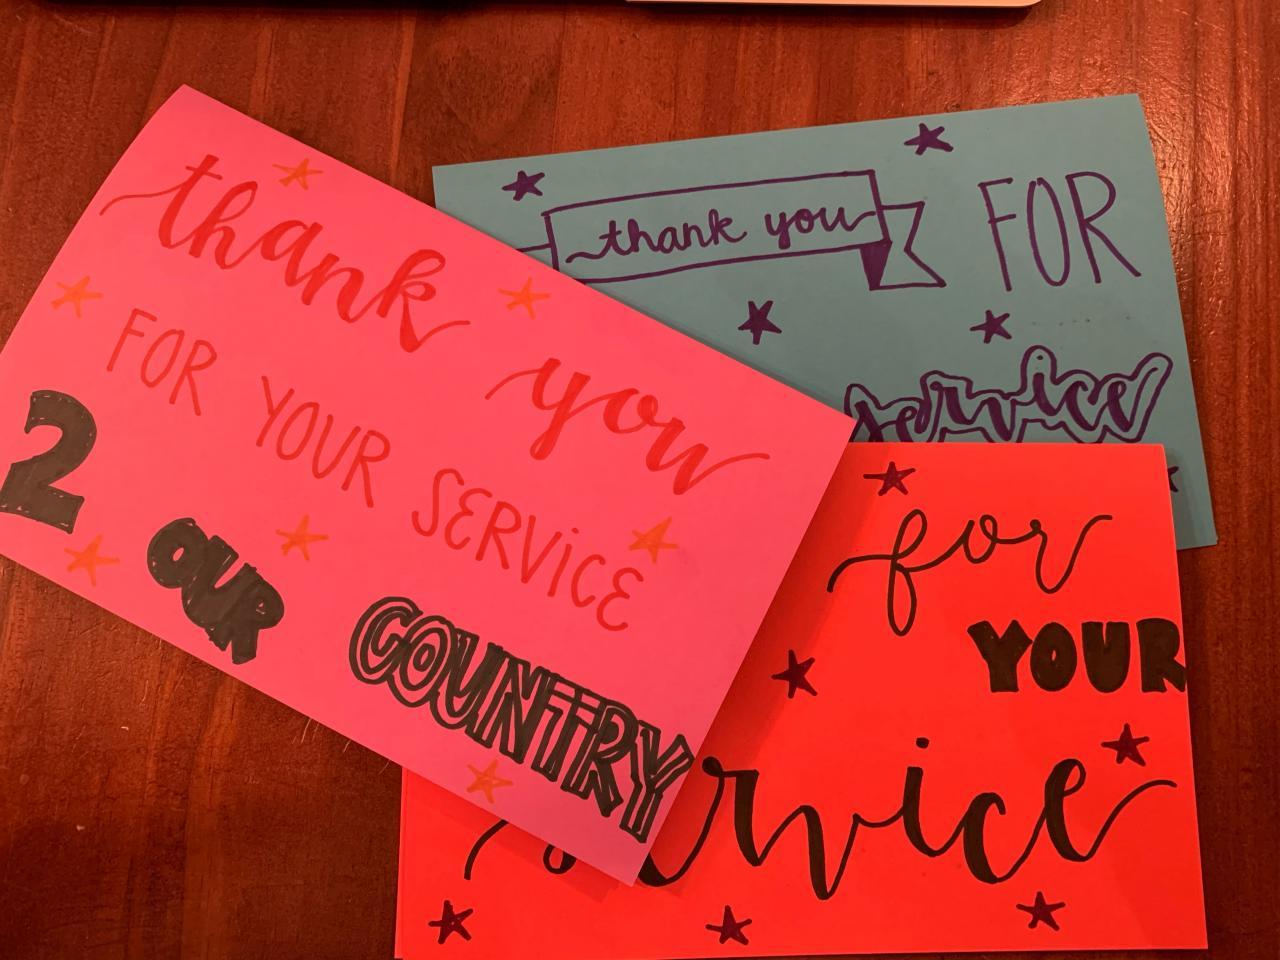 thank you
FOR YOUR SERVICE
2 OUR COUNTRY
thank you FOR
service
for
YOUR
service